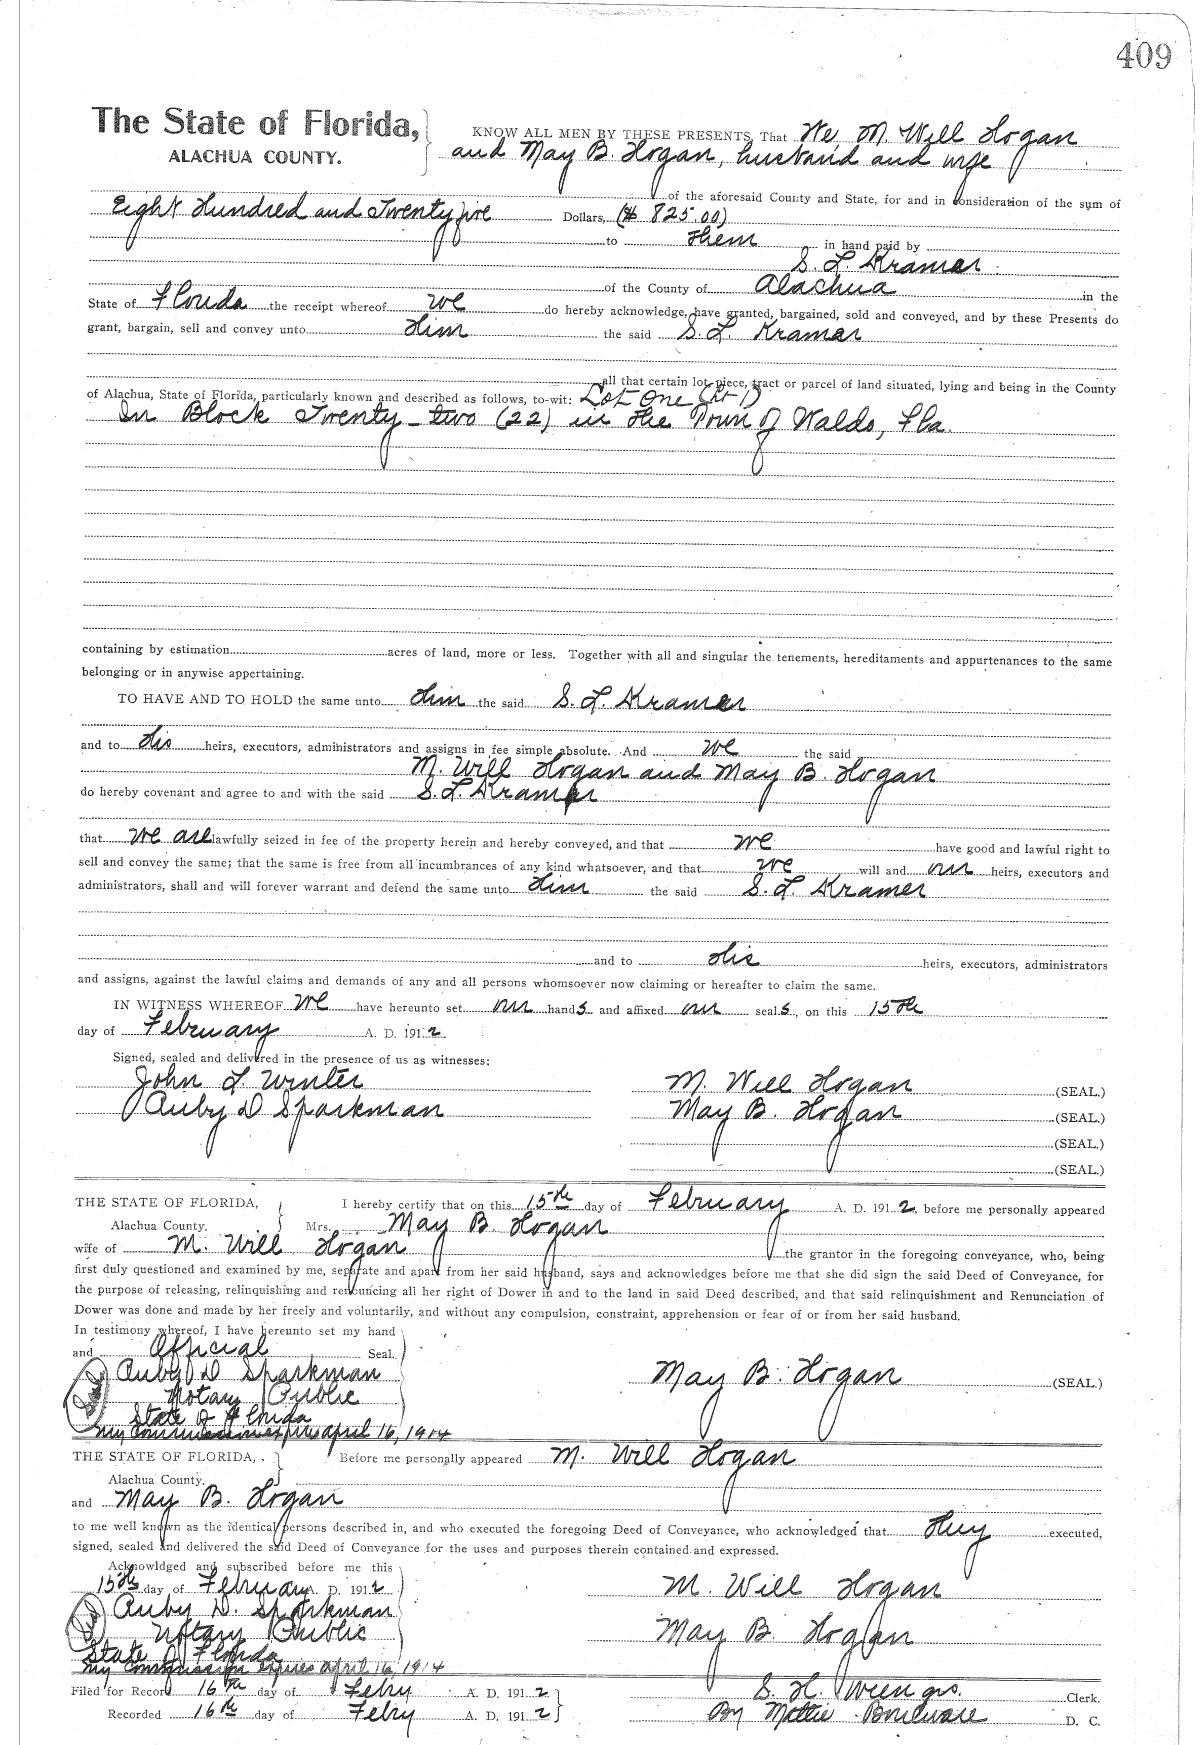 409
The State of Florida,
ALACHUA COUNTY.
KNOW ALL MEN BY THESE PRESENTS, That We, M. Will Hogan
and May B. Hogan, husband and wife
of the aforesaid County and State, for and in consideration of the sum of
Eight Hundred and Twenty five Dollars, ($ 825.00)
to them in hand paid by
S. L. Kramer
of the County of Alachua in the
State of Florida the receipt whereof we do hereby acknowledge, have granted, bargained, sold and conveyed, and by these Presents do
grant, bargain, sell and convey unto him the said S. L. Kramer
all that certain lot, piece, tract or parcel of land situated, lying and being in the County
of Alachua, State of Florida, particularly known and described as follows, to-wit: Lot One (Lot 1)
In Block Twenty-two (22) in the Town of Waldo, Fla.
containing by estimation acres of land, more or less. Together with all and singular the tenements, hereditaments and appurtenances to the same
belonging or in anywise appertaining.
TO HAVE AND TO HOLD the same unto him the said S. L. Kramer
and to his heirs, executors, administrators and assigns in fee simple absolute. And we the said
M. Will Hogan and May B. Hogan
do hereby covenant and agree to and with the said S. L. Kramer
that we are lawfully seized in fee of the property herein and hereby conveyed, and that we have good and lawful right to
sell and convey the same; that the same is free from all incumbrances of any kind whatsoever, and that we will and our heirs, executors and
administrators, shall and will forever warrant and defend the same unto him the said S. L. Kramer
and to his heirs, executors, administrators
and assigns, against the lawful claims and demands of any and all persons whomsoever now claiming or hereafter to claim the same.
IN WITNESS WHEREOF we have hereunto set our hands and affixed our seals, on this 15th
day of February A. D. 1912
Signed, sealed and delivered in the presence of us as witnesses:
John L. Winter M. Will Hogan (SEAL.)
Auby D Sparkman May B. Hogan (SEAL.)
(SEAL.)
(SEAL.)
THE STATE OF FLORIDA, I hereby certify that on this 15th day of February A. D. 1912, before me personally appeared
Alachua County. Mrs. May B. Hogan
wife of M. Will Hogan the grantor in the foregoing conveyance, who, being
first duly questioned and examined by me, separate and apart from her said husband, says and acknowledges before me that she did sign the said Deed of Conveyance, for
the purpose of releasing, relinquishing and renouncing all her right of Dower in and to the land in said Deed described, and that said relinquishment and Renunciation of
Dower was done and made by her freely and voluntarily, and without any compulsion, constraint, apprehension or fear of or from her said husband.
In testimony whereof, I have hereunto set my hand
and Official Seal.
Auby D Sparkman May B. Hogan (SEAL.)
Notary Public
State of Florida
My Commission expires april 16, 1914
THE STATE OF FLORIDA, Before me personally appeared M. Will Hogan
Alachua County.
and May B. Hogan
to me well known as the identical persons described in, and who executed the foregoing Deed of Conveyance, who acknowledged that they executed,
signed, sealed and delivered the said Deed of Conveyance for the uses and purposes therein contained and expressed.
Acknowldged and subscribed before me this
15th day of February A. D. 1912 M. Will Hogan
Auby D. Sparkman
Notary Public May B. Hogan
State of Florida
My Commission expires april 16, 1914
Filed for Record 16th day of Febry A. D. 1912 S. H. Wienges. Clerk.
Recorded 16th day of Febry A. D. 1912 By Mattie Boulware D. C.